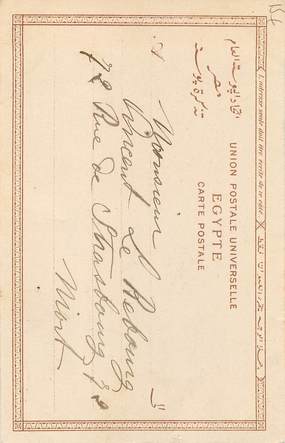 اتحاد البوستة العام
مصر
تذكرة بوستة
UNION POSTALE UNIVERSELLE
EGYPTE
CARTE POSTALE
L'adresse seule doit être écrite de ce côté
Monsieur
Vincent Le Rebourg
72 Rue de Strasbourg 72
Niort